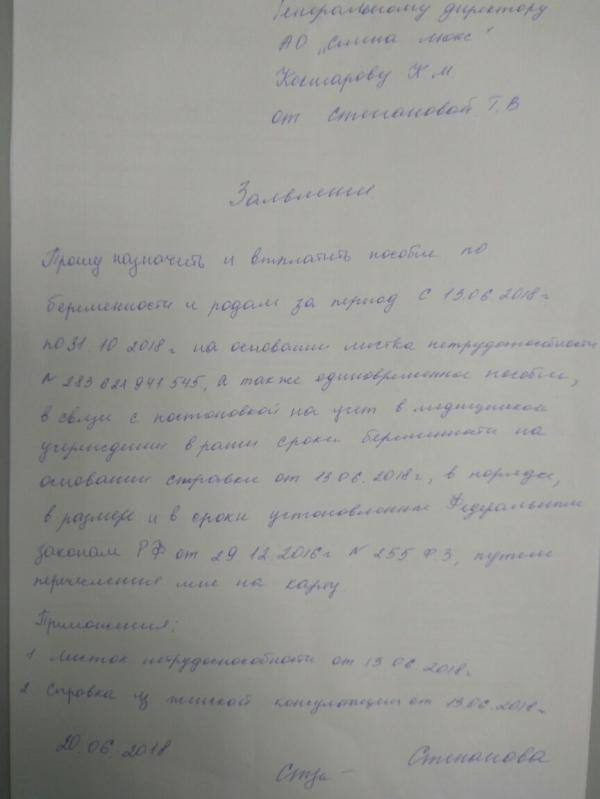 Генеральному директору
АО „Смена люкс"
Кошарову К.М.
от Степановой Т.В
Заявление.
Прошу назначить и втплатить пособие по
беременности и родам за период с 13.06.2018г
по 31.10 2018г на основании листка нетрудоспособности
N 283 621 941 545, а также одиновременное пособие,
в связи с постановкой на учет в медицинском
учереждении в рание сроки беременности на
основании справки от 13 06. 2018г, в порядке,
в размере и в сроки установленные Федеральным
законам РФ от 29 12.2016г N 255 Ф.З, путем
перечисления мне на карту.
Приложения:
1 Листок нетрудоспособности от 13 06. 2018г
2 Справка из женской консультации от 13.06.2018г
20.06.2018
Степанова